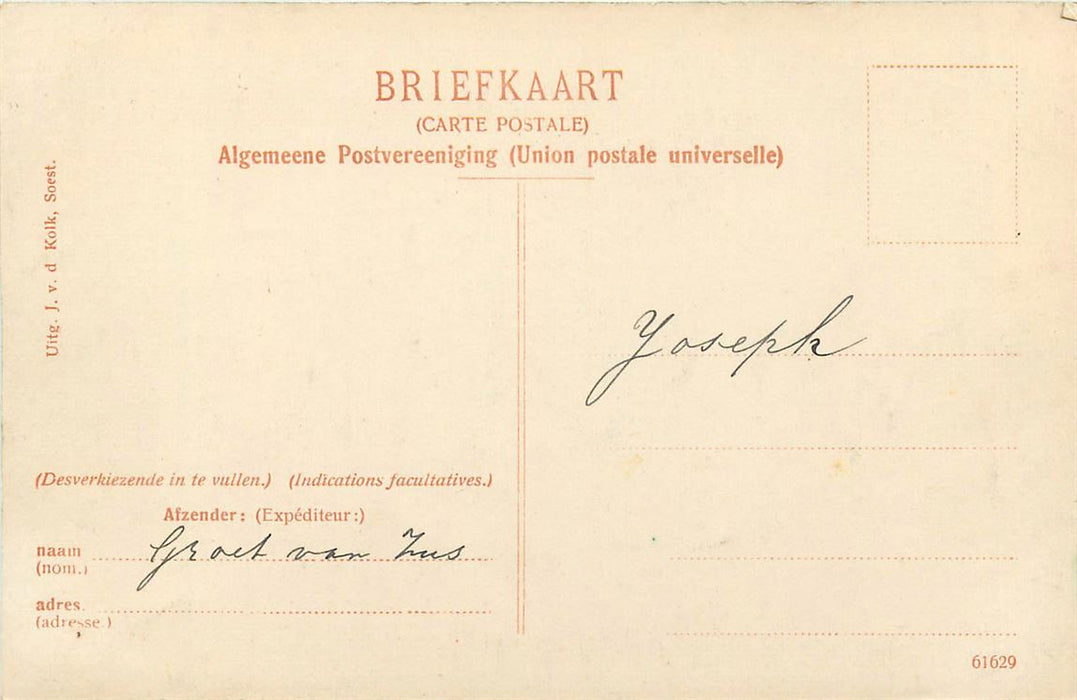 BRIEFKAART
(CARTE POSTALE)
Algemeene Postvereeniging (Union postale universelle)
Uitg. J. v. d Kolk, Soest.
Joseph
(Desverkiezende in te vullen.) (Indications facultatives.)
Afzender: (Expéditeur:)
naam Groet van Zus
(nom.)
adres.
(adresse.)
61629